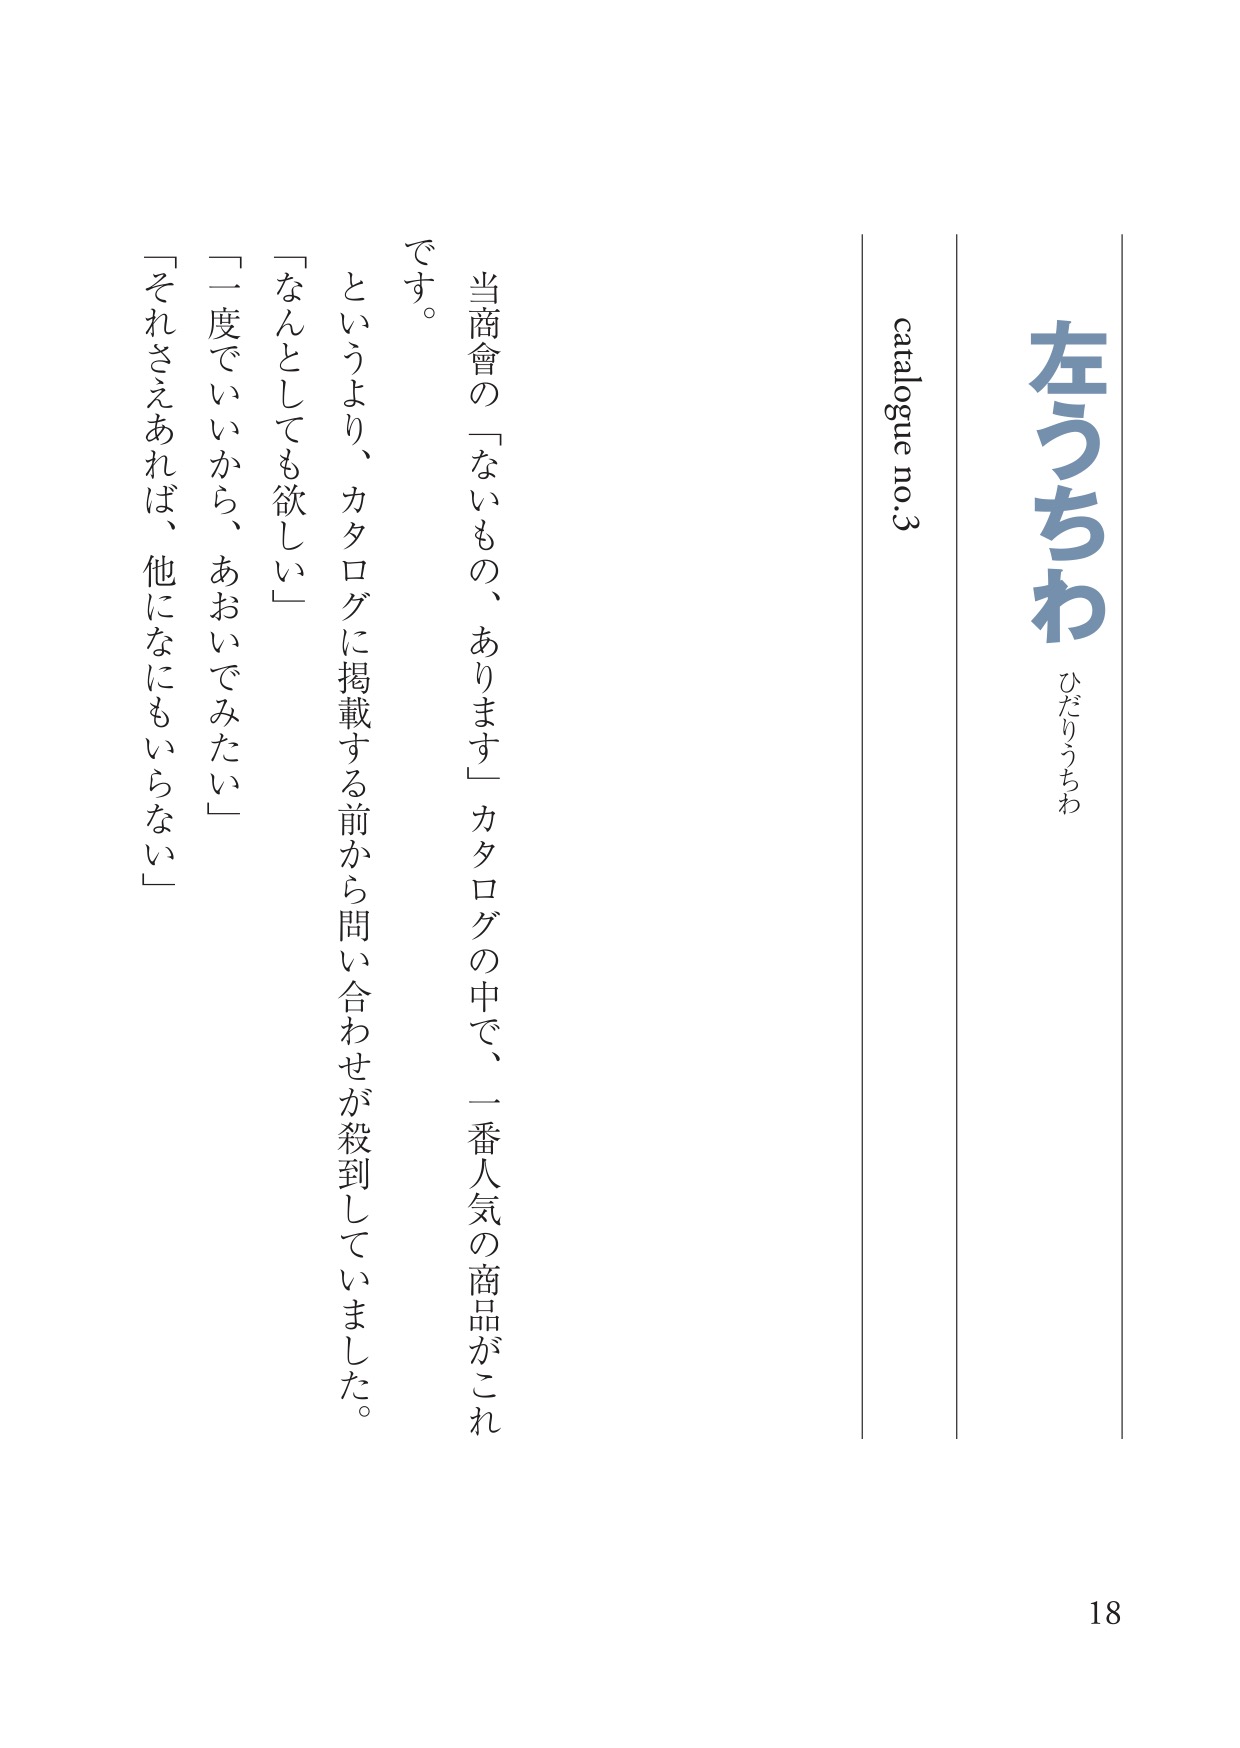 左うちわ ひだりうちわ
catalogue no.3
当商會の「ないもの、あります」カタログの中で、一番人気の商品がこれ
です。
というより、カタログに掲載する前から問い合わせが殺到していました。
「なんとしても欲しい」
「一度でいいから、あおいでみたい」
「それさえあれば、他になにもいらない」
18